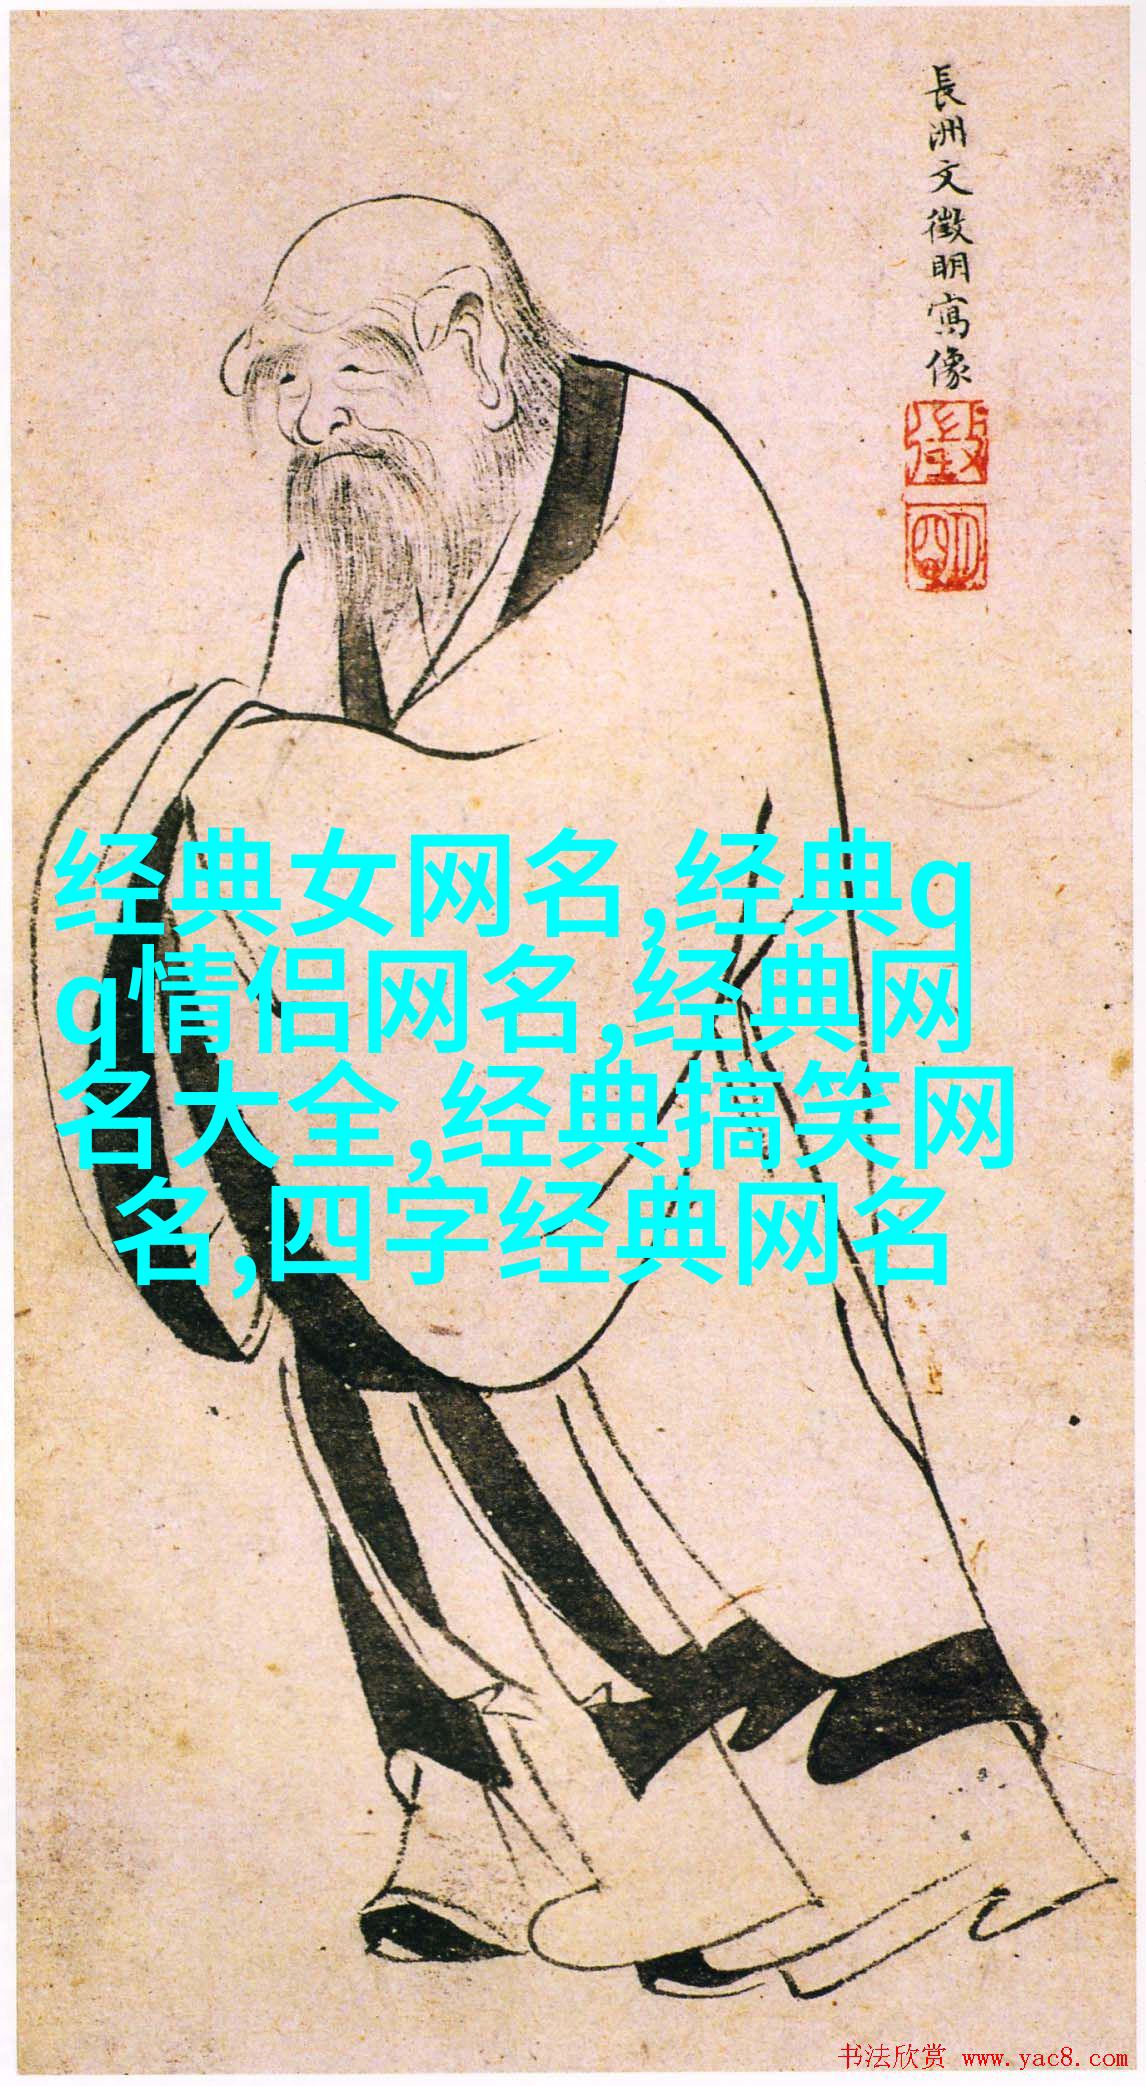 長洲文徵明寫像
徵
明
经典女网名,经典q
q情侣网名,经典网
名大全,经典搞笑网
名,四字经典网名
书法欣赏 www.yac8.com